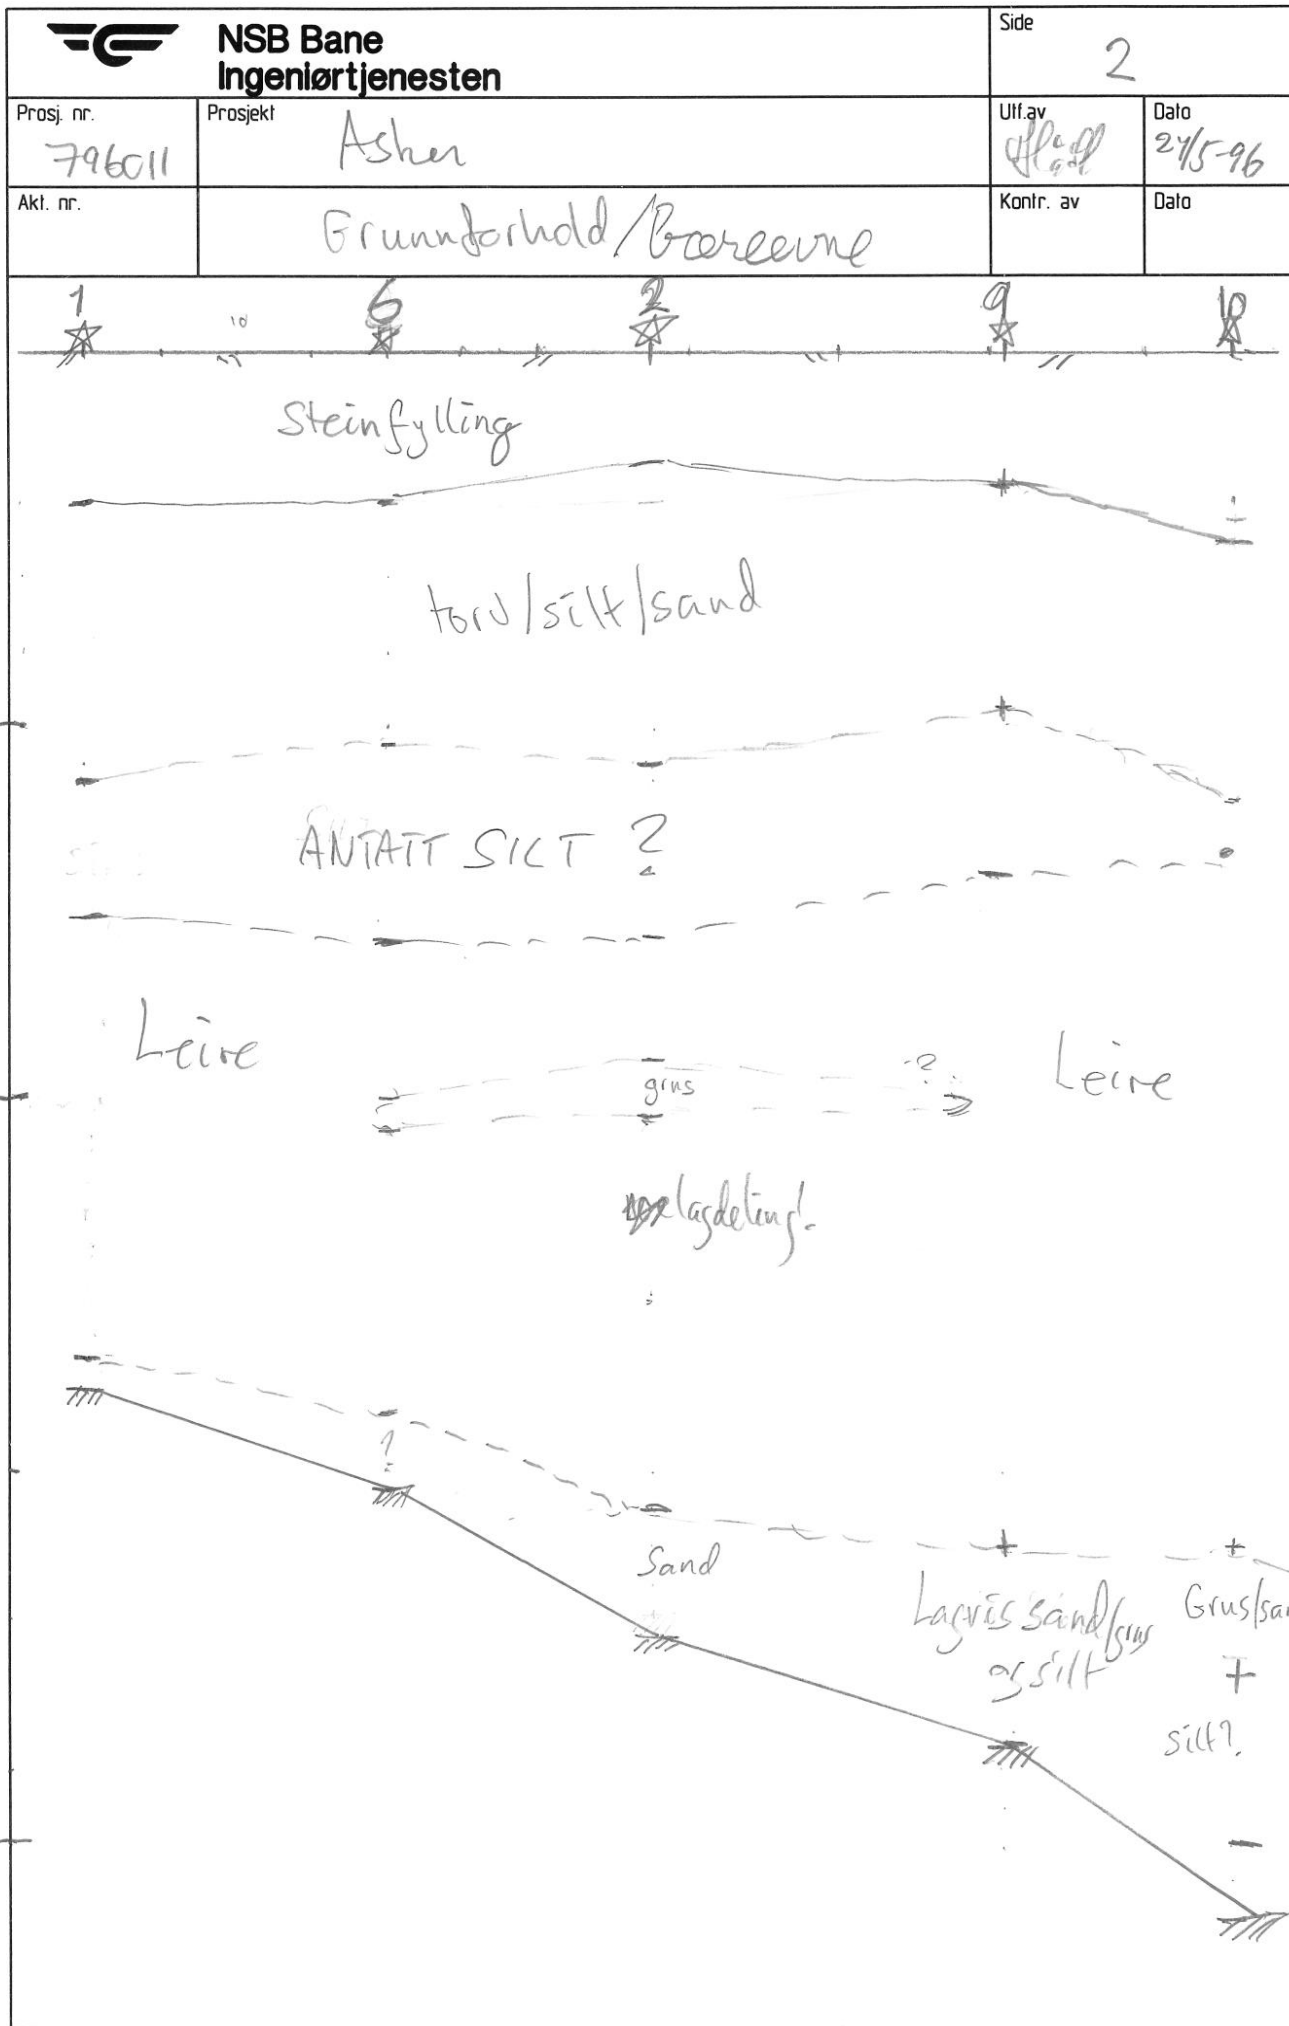 NSB Bane
Ingeniørtjenesten
Side
2
Prosj. nr.
796011
Prosjekt
Asker
Utf.av
Dato
24/5-96
Akt. nr.
Grunnforhold/Bæreevne
Kontr. av
Dato
1 6 2 9 10
10
Steinfylling
torv/silt/sand
ANTATT SILT ?
Leire
grus
?
Leire
lagdeling!
?
Sand
Lagvis sand/grus
og silt
Grus/san
silt?